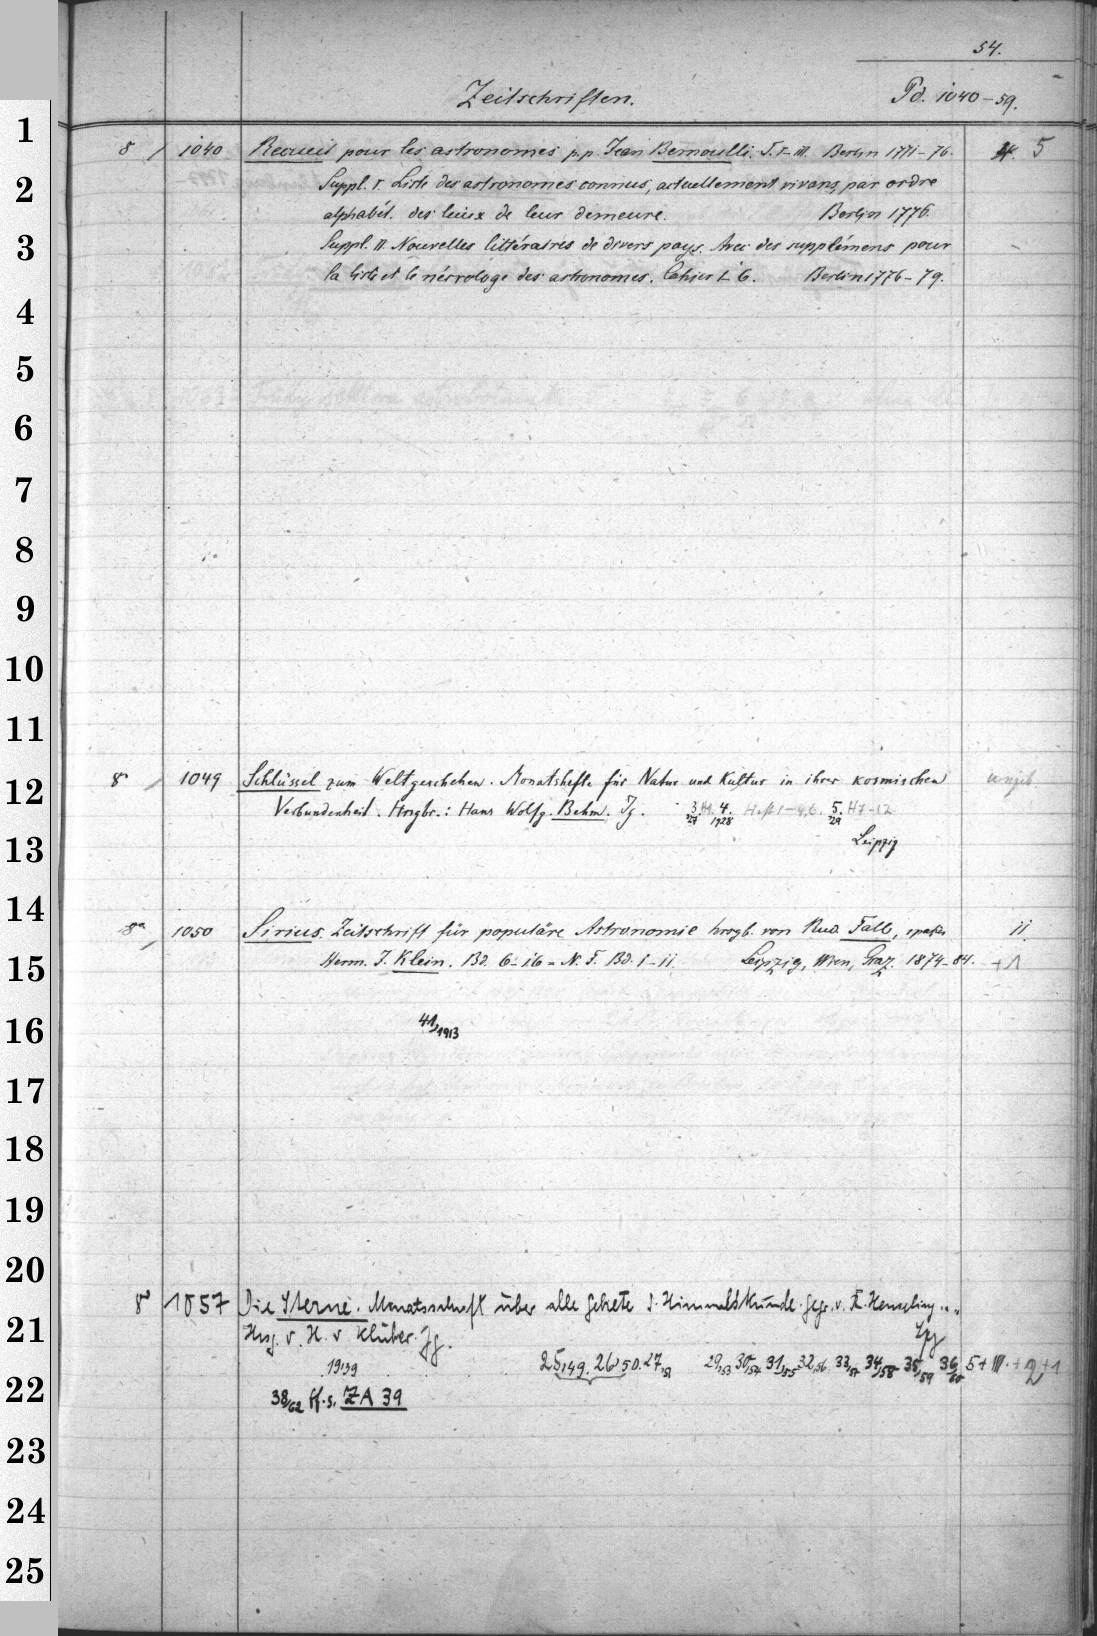 54.
Zeitschriften. Pd. 1040-59.
1
8 / 1040 Recueil pour les astronomes p.p. Jean Bernoulli. T. I-III. Berlin 1771-76. 5
2
Suppl. I. Liste des astronomes connus, actuellement vivans, par ordre
alphabét. des lieux de leur demeure. Berlin 1776.
3
Suppl. II. Nouvelles littéraires de divers pays. Avec des supplémens pour
la liste et le nécrologe des astronomes. Cahier 1-6. Berlin 1776-79.
4
5
6
7
8
9
10
11
12
8° / 1049 Schlüssel zum Weltgeschehen. Monatshefte für Natur und Kultur in ihrer kosmischen ungeb
Verbundenheit. Hrsgbr.: Hans Wolfg. Behm. Jg. 3. 27 H. 4. 1928 Heft 1-4, 6. 5. 29 H 7-12
13
Leipzig
14
8° / 1050 Sirius. Zeitschrift für populäre Astronomie hrsgb. von Rud. Falb, später 11.
15
Herm. J. Klein. Bd. 6-16 = N. F. Bd. 1-11. Leipzig, Wien, Graz. 1874-84. +1
16
41, 1913
17
18
19
20
8° 1057 Die Sterne. Monatsschrift über alle Gebiete d. Himmelskunde. Gegr. v. R. Henseling...
21
Hrsg. v. H. v. Klüber. Jg. Lpg
1939 25,49. 26,50. 27,51 29,53 30,54 31,55 32,56. 33,57 34/58 35/59 36/60 5+III.+2+1
22
38/62 ff. s. ZA 39
23
24
25